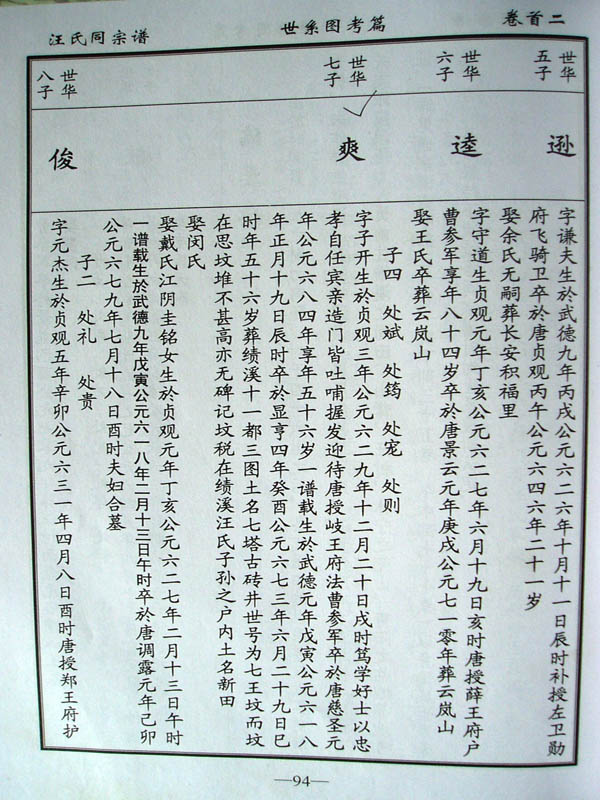 汪氏同宗谱
世系图考篇
卷首二
世华五子
逊
字谦夫生於武德九年丙戌公元六二六年十月十一日辰时补授左卫勋
府飞骑卫卒於唐贞观丙午公元六四六年二十一岁
娶余氏无嗣葬长安积福里
世华六子
逵
字守道生贞观元年丁亥公元六二七年六月十九日亥时唐授薛王府户
曹参军享年八十四岁卒於唐景云元年庚戌公元七一零年葬云岚山
娶王氏卒葬云岚山
子四 处斌 处筠 处宠 处则
世华七子
爽
字子开生於贞观三年公元六二九年十二月二十日戌时笃学好士以忠
孝自任宾亲造门皆吐哺握发迎待唐授岐王府法曹参军卒於唐慈圣元
年公元六八四年享年五十六岁一谱载生於武德元年戊寅公元六一八
年正月十九日辰时卒於显亨四年癸酉公元六七三年六月二十九日巳
时年五十六岁葬绩溪十一都三图土名七塔古砖井世号为七王坟而坟
在思坟堆不甚高亦无碑记坟税在绩溪汪氏子孙之户内土名新田
娶闵氏
娶戴氏江阴圭铭女生於贞观元年丁亥公元六二七年二月十三日午时
一谱载生於武德九年戊寅公元六一八年二月十三日午时卒於唐调露元年己卯
公元六七九年七月十八日酉时夫妇合墓
子二 处礼 处贵
世华八子
俊
字元杰生於贞观五年辛卯公元六三一年四月八日酉时唐授郑王府护
—94—